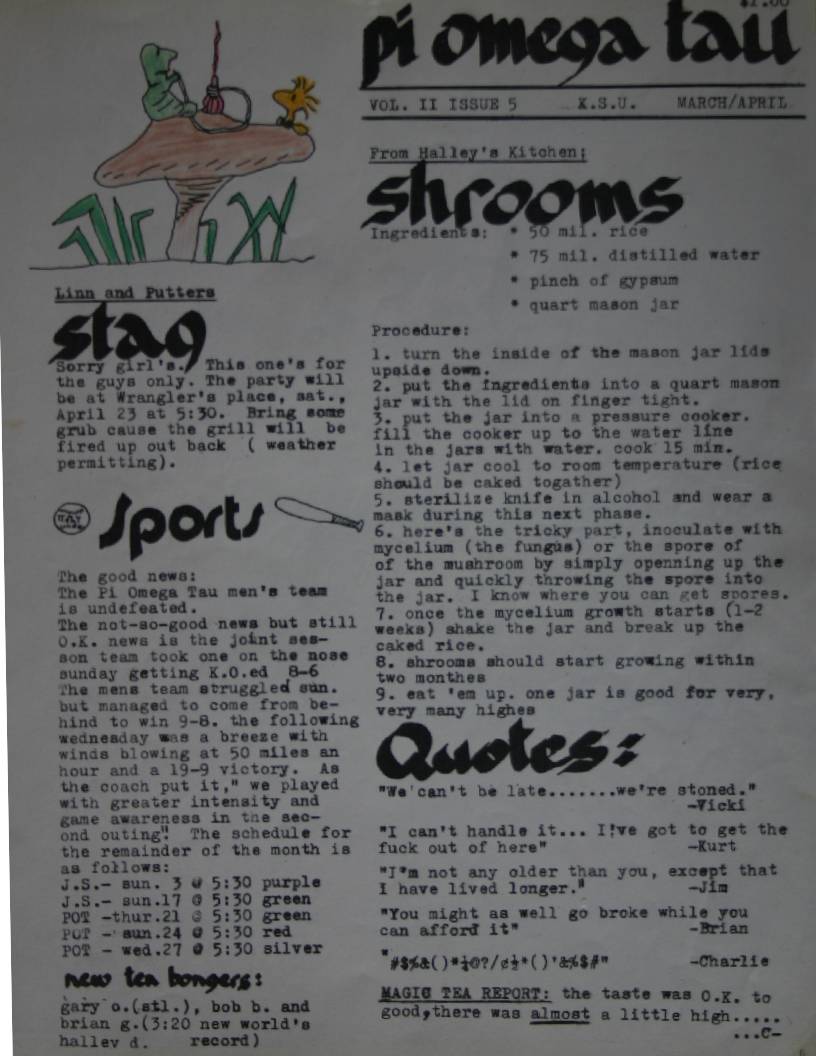 $1.00
pi omega tau
VOL. II ISSUE 5 K.S.U. MARCH/APRIL
Linn and Putters
stag
Sorry girl's. This one's for
the guys only. The party will
be at Wrangler's place, sat.,
April 23 at 5:30. Bring some
grub cause the grill will be
fired up out back ( weather
permitting).
Sports
The good news:
The Pi Omega Tau men's team
is undefeated.
The not-so-good news but still
O.K. news is the joint ses-
son team took one on the nose
sunday getting K.O.ed 8-6
The mens team struggled sun.
but managed to come from be-
hind to win 9-8. the following
wednesday was a breeze with
winds blowing at 50 miles an
hour and a 19-9 victory. As
the coach put it," we played
with greater intensity and
game awareness in the sec-
ond outing". The schedule for
the remainder of the month is
as follows:
J.S.- sun. 3 @ 5:30 purple
J.S.- sun.17 @ 5:30 green
POT -thur.21 @ 5:30 green
POT - sun.24 @ 5:30 red
POT - wed.27 @ 5:30 silver
new tea bongers:
gary o.(stl.), bob b. and
brian g.(3:20 new world's
halley d. record)
From Halley's Kitchen;
shrooms
Ingredients: * 50 mil. rice
* 75 mil. distilled water
* pinch of gypsum
* quart mason jar
Procedure:
1. turn the inside of the mason jar lids
upside down.
2. put the ingredients into a quart mason
jar with the lid on finger tight.
3. put the jar into a pressure cooker.
fill the cooker up to the water line
in the jars with water. cook 15 min.
4. let jar cool to room temperature (rice
should be caked togather)
5. sterilize knife in alcohol and wear a
mask during this next phase.
6. here's the tricky part, inoculate with
mycelium (the fungus) or the spore of
of the mushroom by simply openning up the
jar and quickly throwing the spore into
the jar. I know where you can get spores.
7. once the mycelium growth starts (1-2
weeks) shake the jar and break up the
caked rice.
8. shrooms should start growing within
two monthes
9. eat 'em up. one jar is good for very,
very many highes
Quotes:
"We can't be late.......we're stoned."
-Vicki
"I can't handle it... I've got to get the
fuck out of here" -Kurt
"I'm not any older than you, except that
I have lived longer." -Jim
"You might as well go broke while you
can afford it" -Brian
"#$%&()*¼@?/¢½*()'&%$#" -Charlie
MAGIC TEA REPORT: the taste was O.K. to
good,there was almost a little high.....
...C-